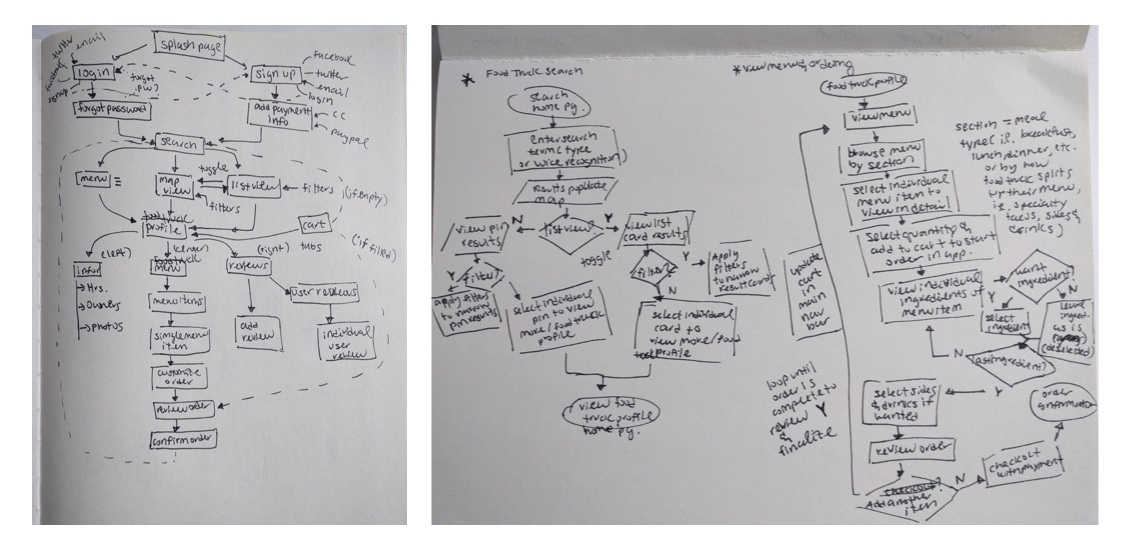 splash page
twitter
email
facebook
signup
login
forgot
pw?
sign up
facebook
twitter
email
login
forgot password
add payment
info
CC
paypal
search
menu
toggle
map
view
list view
filters
filters
(if empty)
food truck
profile
cart
(if filled)
(left)
(center)
(right)
tabs
infor
Hrs.
Owners
photos
food truck
menu
reviews
menu items
user reviews
single menu
item
add
review
individual
user
review
customize
order
review order
confirm order
* Food Truck Search
search
home pg.
enter search
term (type
or voice recognition)
results populate
map
N
Y
list view?
view pin
results
view list
card results
toggle
filter?
Y
filter?
Y
N
apply filters
to narrow
pin results
Apply
filters
to narrow
result cards
select individual
pin to view
more/food truck
profile
select individual
card to
view more/food
truck profile
view food
truck profile
home pg.
* view menus & ordering
food truck profile
view menu
browse menu
by section
select individual
menu item to
view in detail
select quantity &
add to cart to start
order in app.
view individual
ingredients of
menu item
section = meal
type (i.e. breakfast,
lunch, dinner, etc.
or by how
food truck splits
up their menu,
i.e. specialty
tacos, sides &
drinks)
want
ingredient?
Y
N
select
ingredient
leave
ingred.
as is
(deselected)
last ingredient?
N
Y
update
cart
in
main
nav
bar
loop until
order is
complete to
review
&
finalize
Y
select sides
& drinks if
wanted
review order
checkout?
Add another
item
N
checkout
with payment
order
confirmation